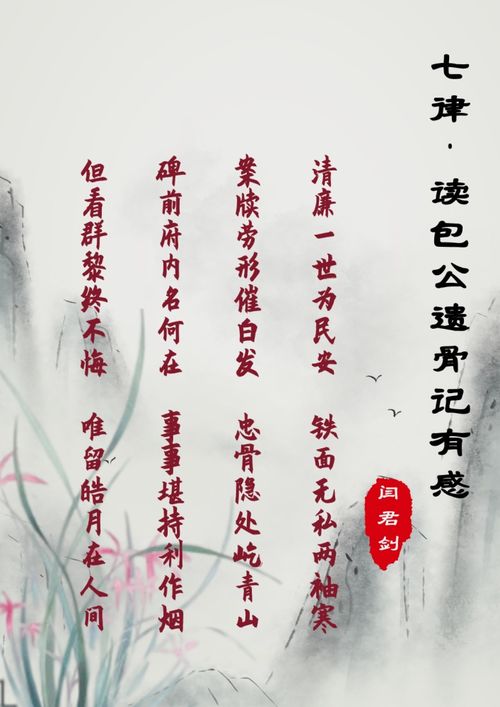 七律·读包公遗骨记有感
闫君剑
清廉一世为民安 铁面无私两袖寒
案牍劳形催白发 忠骨隐处屹青山
碑前府内名何在 事事堪持利作烟
但看群黎终不悔 唯留皓月在人间